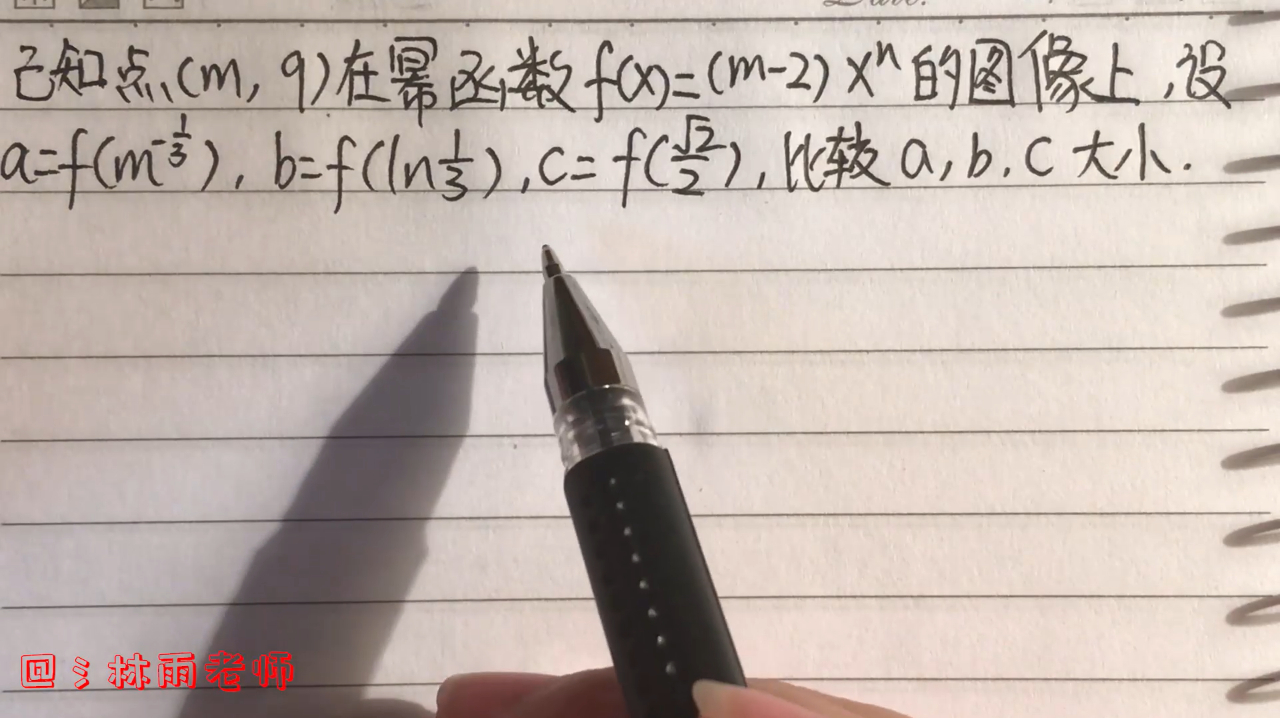 已知点(m, 9)在幂函数 f(x)=(m-2)xⁿ 的图像上,设
a=f(m^{-\frac{1}{3}}), b=f(ln\frac{1}{3}), c=f(\frac{\sqrt{2}}{2}), 比较 a, b, c 大小.
林雨老师